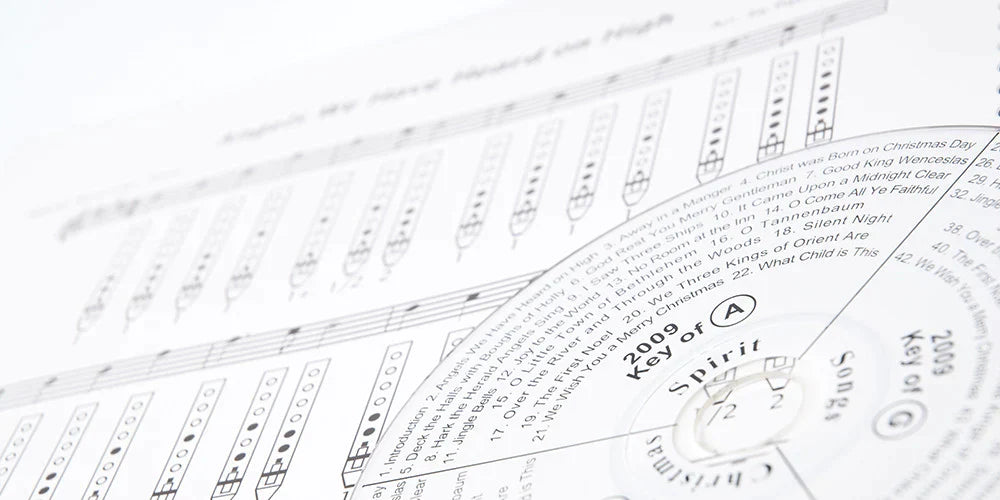 Angels We Have Heard on High
1. Introduction 2. Angels We Have Heard on High 3. Away in a Manger 4. Christ was Born on Christmas Day
5. Deck the Halls with Boughs of Holly 6. God Rest you Merry Gentleman 7. Good King Wenceslas
8. Hark the Herald Angels Sing 9. I Saw Three Ships 10. It Came Upon a Midnight Clear
11. Jingle Bells 12. Joy to the World 13. No Room at the Inn 14. O Come All Ye Faithful
15. O Little Town of Bethlehem 16. O Tannenbaum
17. Over the River and Through the Woods 18. Silent Night
19. The First Noel 20. We Three Kings of Orient Are
21. We Wish You a Merry Christmas 22. What Child is This
2009
Key of A
Spirit
Songs
Christmas
2009
Key of G
1/2 2
29. H
32. Jingle
38. Over
40. The First
42. We Wish You a Merry Christmas
ay
slas
Clear
baum
is This